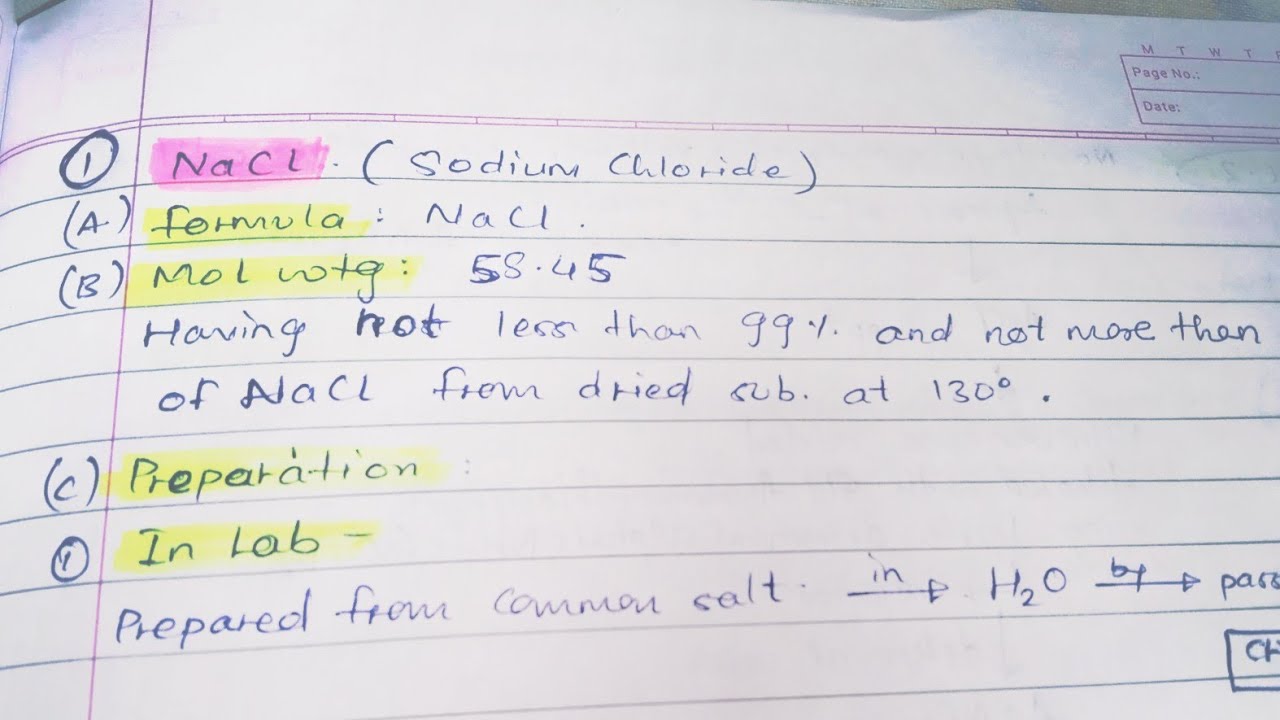 M T W T F
Page No.:
Date:
① NaCl. (Sodium Chloride)
(A) formula : NaCl.
(B) Mol wtg: 58.45
Having not less than 99% and not more than
of NaCl from dried sub. at 130°.
(C) Preparation :
① In Lab –
Prepared from common salt. in→ H₂O by→ pass